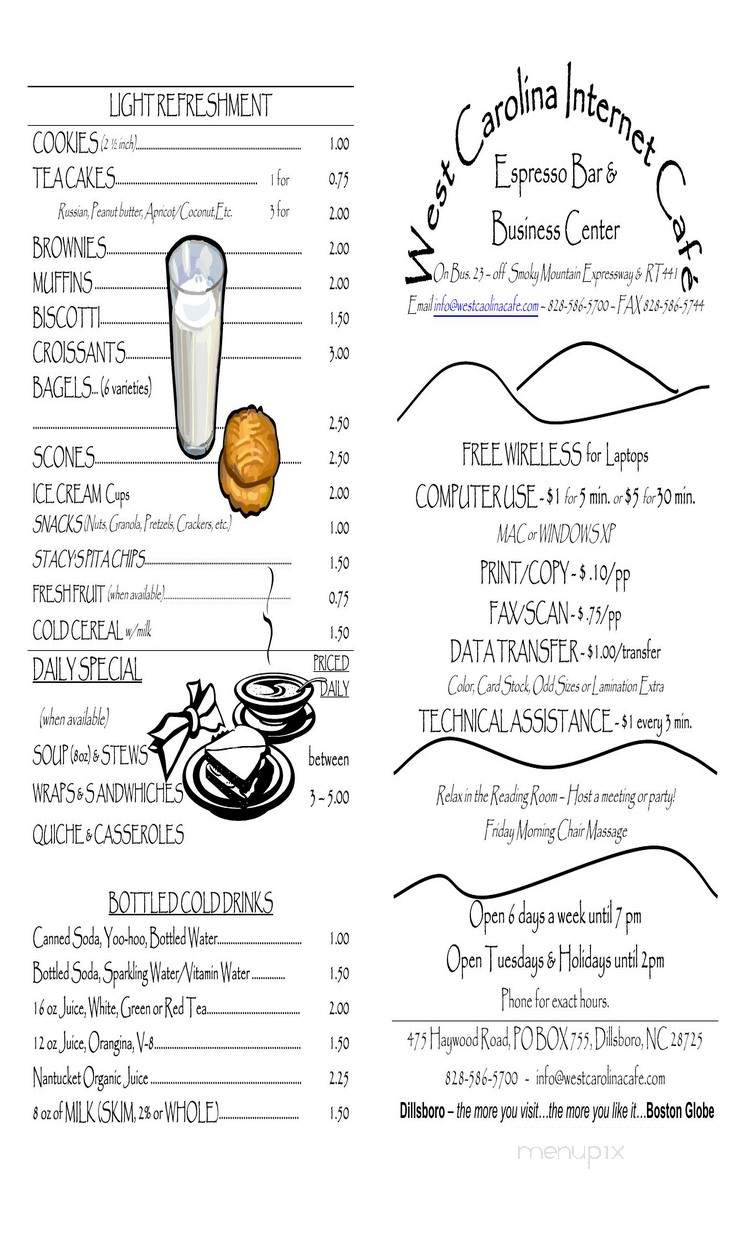 LIGHT REFRESHMENT
COOKIES (2 ½ inch)............ 1.00
TEA CAKES............ 1 for 0.75
Russian, Peanut butter, Apricot/Coconut,Etc. 3 for 2.00
BROWNIES............ 2.00
MUFFINS ............ 2.00
BISCOTTI............ 1.50
CROISSANTS............ 3.00
BAGELS... (6 varieties)
............ 2.50
SCONES............ 2.50
ICE CREAM Cups 2.00
SNACKS (Nuts, Granola, Pretzels, Crackers, etc.) 1.00
STACY'S PITA CHIPS............ 1.50
FRESH FRUIT (when available)............ 0.75
COLD CEREAL w/milk 1.50
DAILY SPECIAL PRICED
DAILY
(when available)
SOUP (8oz) & STEWS between
WRAPS & SANDWHICHES 3 – 5.00
QUICHE & CASSEROLES
BOTTLED COLD DRINKS
Canned Soda, Yoo-hoo, Bottled Water............ 1.00
Bottled Soda, Sparkling Water/Vitamin Water ............ 1.50
16 oz Juice, White, Green or Red Tea............ 2.00
12 oz Juice, Orangina, V-8............ 1.50
Nantucket Organic Juice ............ 2.25
8 oz of MILK (SKIM, 2% or WHOLE)............ 1.50
West Carolina Internet Café
Espresso Bar &
Business Center
On Bus. 23 – off Smoky Mountain Expressway & RT 441
Email info@westcaolinacafe.com – 828-586-5700 – FAX 828-586-5744
FREE WIRELESS for Laptops
COMPUTER USE - $1 for 5 min. or $5 for 30 min.
MAC or WINDOWS XP
PRINT/COPY - $ .10/pp
FAX/SCAN - $ .75/pp
DATA TRANSFER - $1.00/transfer
Color, Card Stock, Odd Sizes or Lamination Extra
TECHNICAL ASSISTANCE - $1 every 3 min.
Relax in the Reading Room – Host a meeting or party!
Friday Morning Chair Massage
Open 6 days a week until 7 pm
Open Tuesdays & Holidays until 2pm
Phone for exact hours.
475 Haywood Road, PO BOX 755, Dillsboro, NC 28725
828-586-5700 - info@westcarolinacafe.com
Dillsboro – the more you visit…the more you like it…Boston Globe
menupix